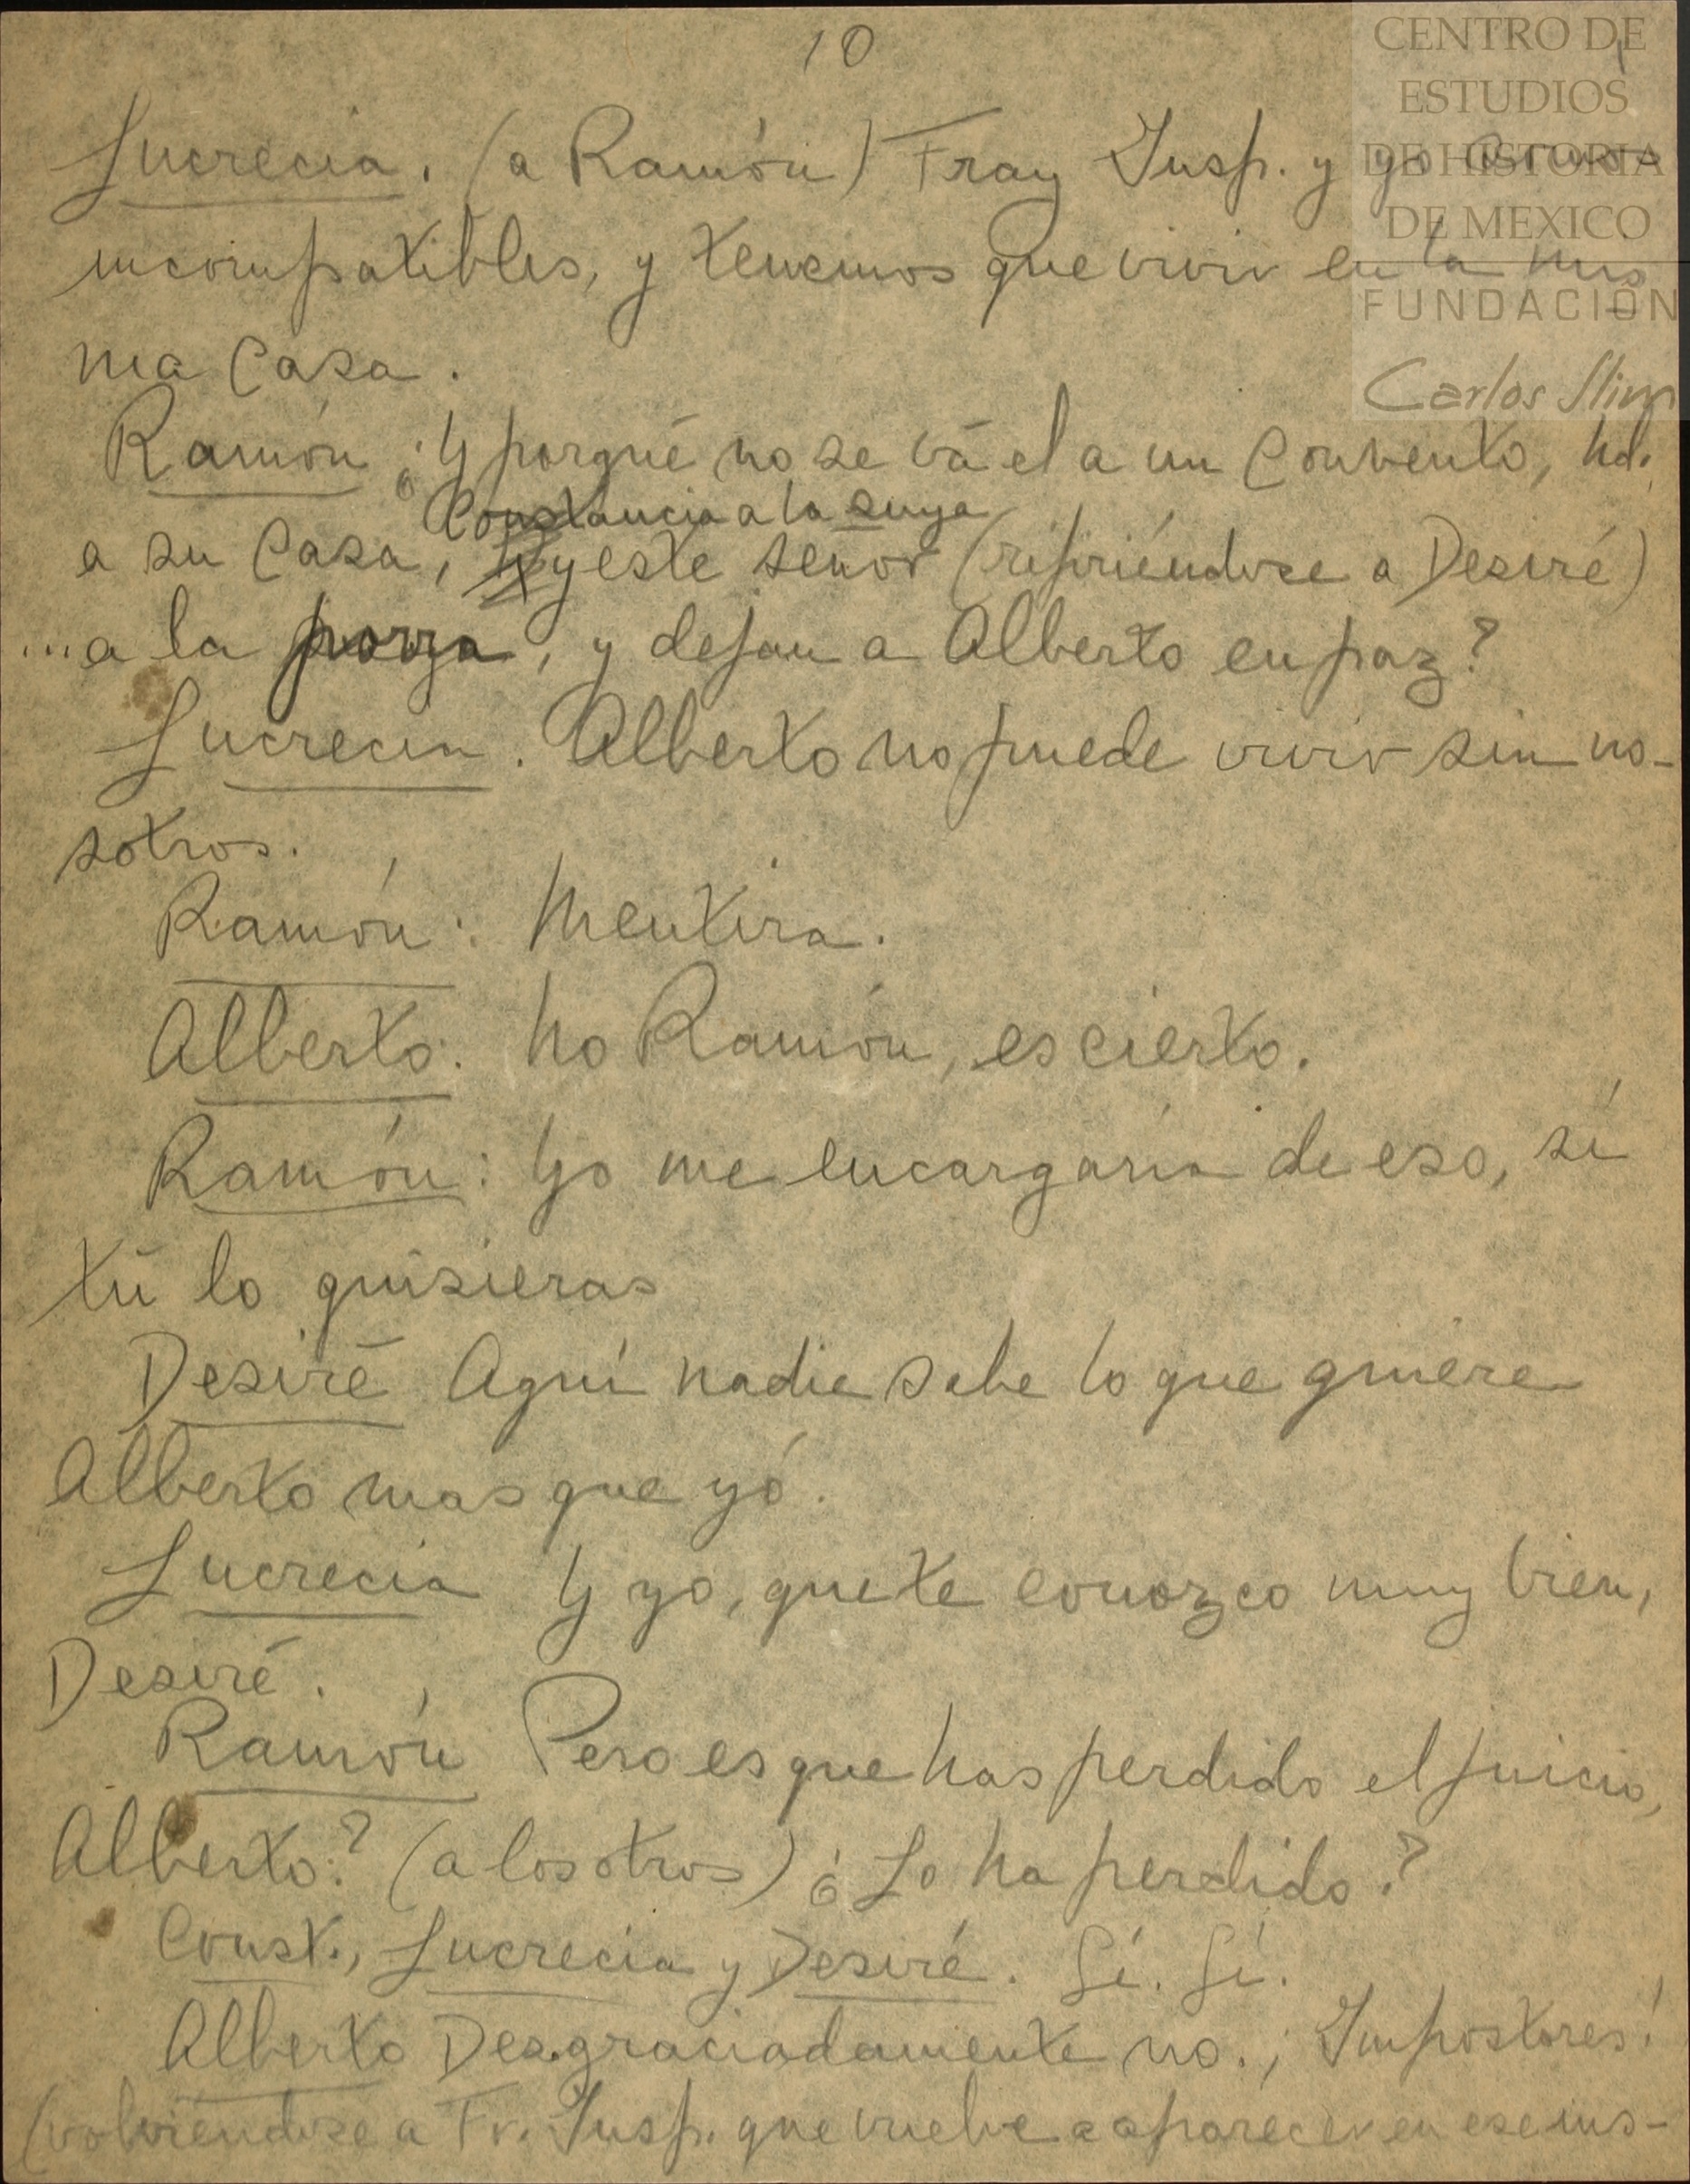 10
CENTRO DE
ESTUDIOS
DE HISTORIA
DE MEXICO
FUNDACIÓN
Carlos Slim
Lucrecia. (a Ramón) Fray Insp. y yo somos
incompatibles, y tenemos que vivir en la mis
ma Casa.
Ramón ¿Y porqué no se vá el a un Convento, Ud.
Constancia a la suya
a su Casa, y este señor (refiriéndose a Desiré)
...a la porra, y dejan a Alberto en paz?
Lucrecia. Alberto no puede vivir sin no-
sotros.
Ramón: Mentira.
Alberto: No Ramón, es cierto.
Ramón: Yo me encargaría de eso, sí
tú lo quisieras
Desiré Aquí nadie sabe lo que quiere
Alberto mas que yó.
Lucrecia Y yo, que te conozco muy bien,
Desiré.
Ramón Pero es que has perdido el juicio,
Alberto? (a los otros) ¿Lo ha perdido?
Const., Lucrecia y Desiré. Sí. Sí.
Alberto Desgraciadamente no. ¡Impostores!
(volviéndose a Fr. Insp. que vuelve a aparecer en ese ins-